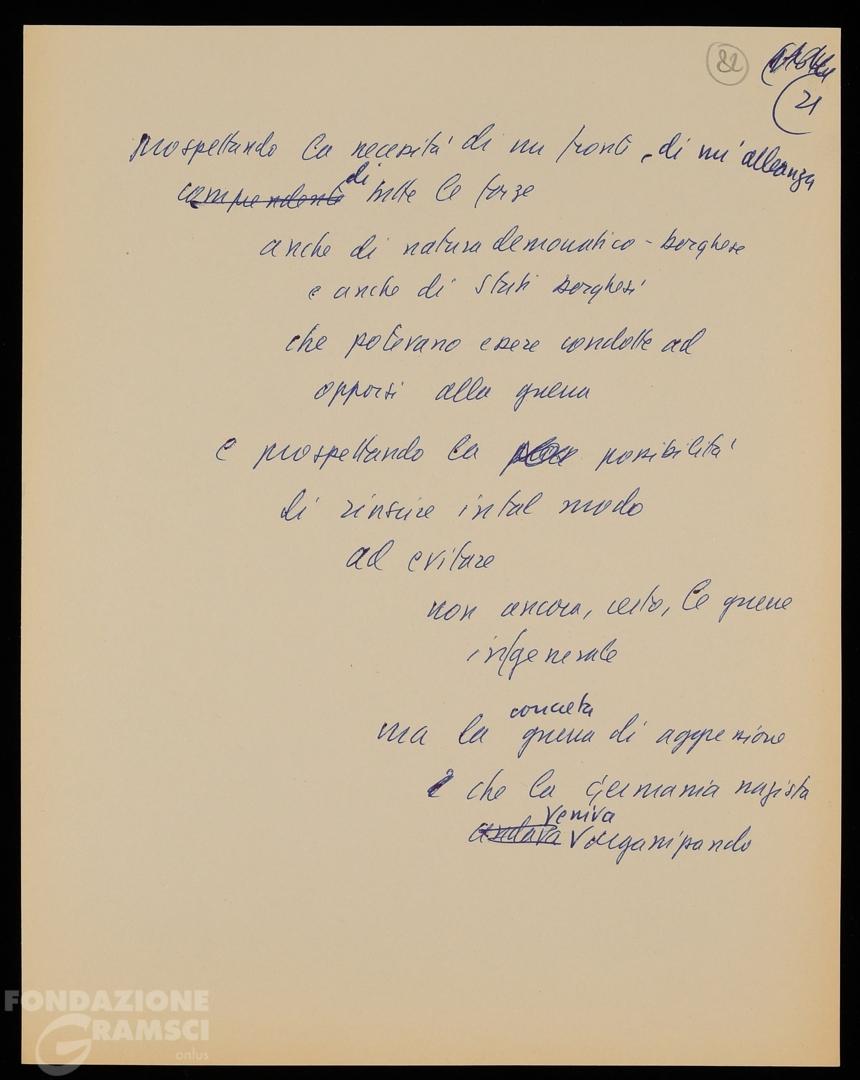 82
21
prospettando la necessità di un fronte, di un'alleanza
comprendente di tutte le forze
anche di natura democratico-borghese
e anche di Stati borghesi
che potevano essere condotte ad
opporsi alla guerra
e prospettando la possibilità
di riuscire in tal modo
ad evitare
non ancora, certo, le guerre
in generale
ma la concreta guerra di aggressione
che la Germania nazista
andava veniva organizzando
FONDAZIONE
GRAMSCI
onlus